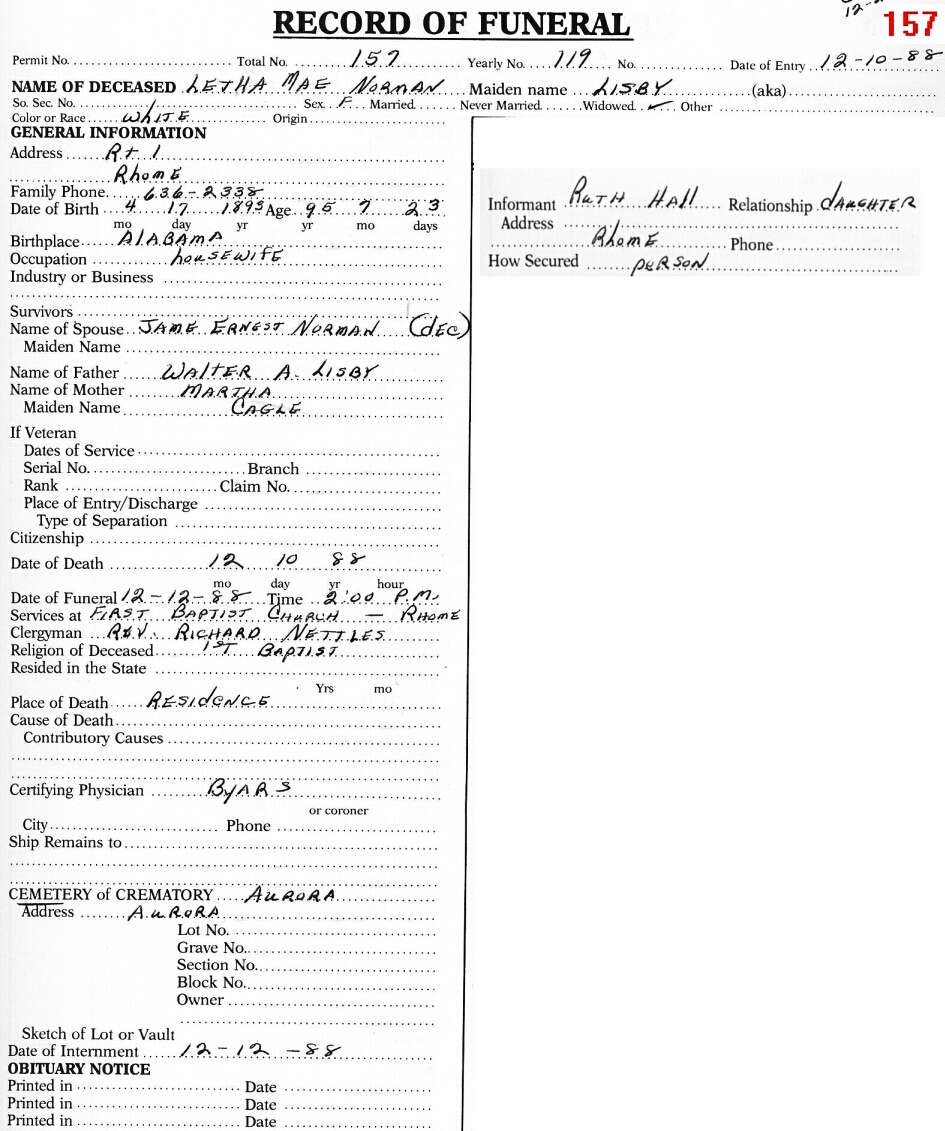 12-2
157
RECORD OF FUNERAL
Permit No. Total No. 157 Yearly No. 119 No. Date of Entry 12-10-88
NAME OF DECEASED LETHA MAE NORMAN Maiden name LISBY (aka)
So. Sec. No. Sex F Married Never Married Widowed ✓ Other
Color or Race WHITE Origin
GENERAL INFORMATION
Address Rt 1
RhomE
Family Phone 636-2338
Date of Birth 4 17 1893 Age 95 7 23
mo day yr yr mo days
Birthplace ALABAMA
Occupation housEWIFE
Industry or Business
Survivors
Name of Spouse JAME ERNEST NORMAN (dEC)
Maiden Name
Name of Father WALTER A. LISBY
Name of Mother MARTHA
Maiden Name CAGLE
If Veteran
Dates of Service
Serial No. Branch
Rank Claim No.
Place of Entry/Discharge
Type of Separation
Citizenship
Date of Death 12 10 88
mo day yr hour
Date of Funeral 12-12-88 Time 2:00 P.M.
Services at FIRST BAPTIST CHURCH - RHOME
Clergyman REV. RICHARD NETTLES
Religion of Deceased 1ST BAPTIST
Resided in the State
Yrs mo
Place of Death RESIdENCE
Cause of Death
Contributory Causes
Certifying Physician ByARS
or coroner
City Phone
Ship Remains to
CEMETERY of CREMATORY AURORA
Address AURORA
Lot No.
Grave No.
Section No.
Block No.
Owner
Sketch of Lot or Vault
Date of Internment 12-12-88
OBITUARY NOTICE
Printed in Date
Printed in Date
Printed in Date
Informant RUTH HALL Relationship dAUGHTER
Address
RhomE Phone
How Secured pERSON